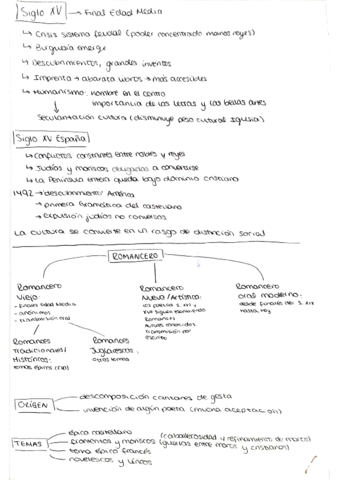 Siglo XV → Final Edad Media
↳ Crisis sistema feudal (poder concentrado manos reyes)
↳ Burguesía emerge
↳ Descubrimientos, grandes inventos
↳ Imprenta → abarata libros → más accesibles
↳ Humanismo: hombre en el centro
importancia de las letras y las bellas artes
Secularización cultura (disminuye peso cultural Iglesia)
Siglo XV España
↳ Conflictos constantes entre nobles y reyes
↳ Judíos y moriscos obligados a convertirse
↳ La Península entera queda bajo dominio cristiano
1492 → descubrimiento América
→ primera Gramática del castellano
→ expulsión judíos no conversos
La cultura se convierte en un rasgo de distinción social
ROMANCERO
Romancero Viejo:
- finales Edad Media
- anónimos
- transmisión oral
Romancero Nuevo/Artístico:
los poetas S. XVI y
XVII siguen escribiendo
Romances
Autores conocidos
Transmisión por
escrito
Romancero
oral moderno:
desde finales del S. XIX
hasta hoy
Romances
Tradicionales/
Históricos:
temas épicos
Romances
Juglarescos:
otros temas
ORIGEN
descomposición cantares de gesta
invención de algún poeta (mucha aceptación)
TEMAS
épica castellana
fronterizos y moriscos (caballerosidad y refinamiento de moros)
(guerras entre moros y cristianos)
tema épico francés
novelescos y líricos